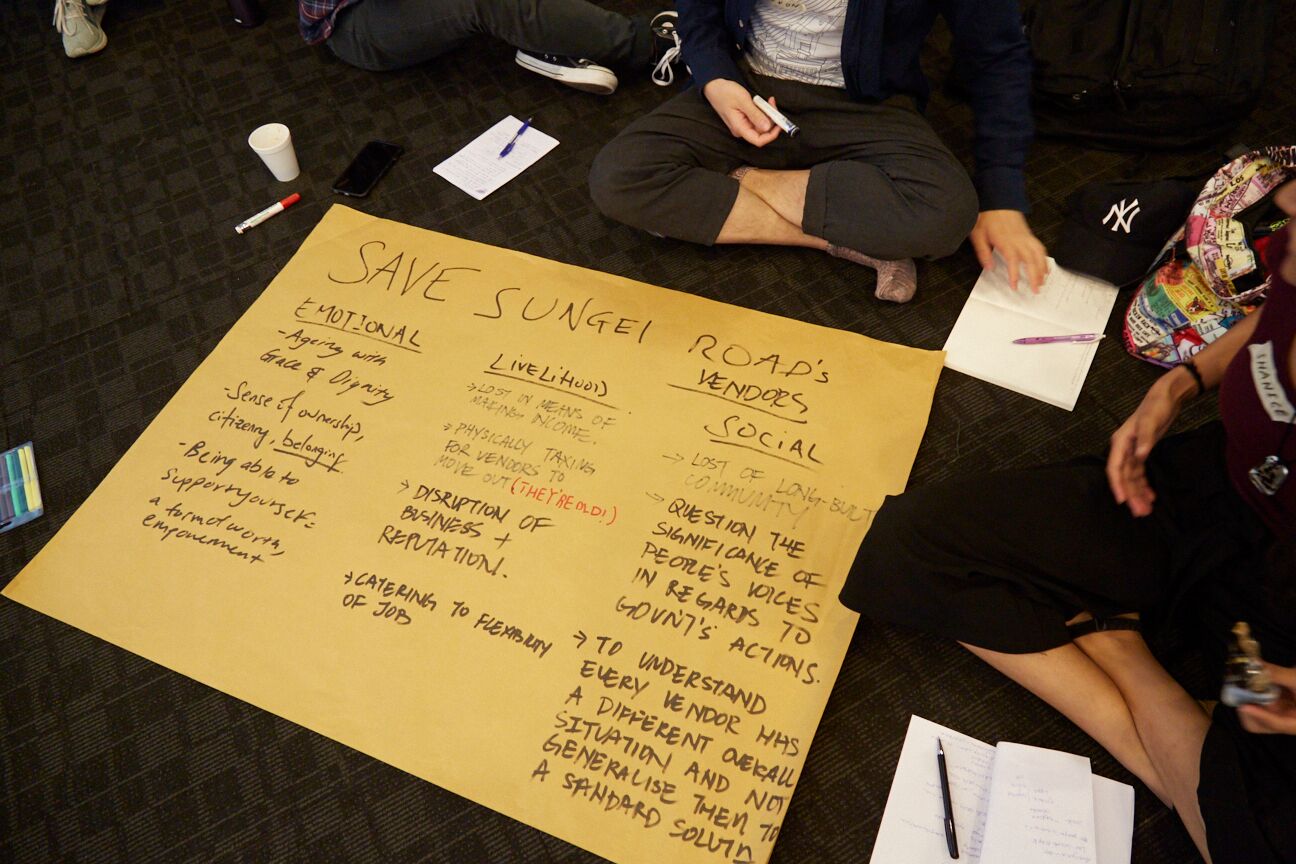 SAVE SUNGEI ROAD'S
VENDORS
EMOTIONAL
- Ageing with
Grace & Dignity
- Sense of ownership,
citizenry, belonging
- Being able to
support yourself =
a form of worth,
empowerment
LIVELIHOOD
→ LOST IN MEANS OF
MAKING INCOME.
→ PHYSICALLY TAXING
FOR VENDORS TO
MOVE OUT (THEY'RE OLD!)
→ DISRUPTION OF
BUSINESS +
REPUTATION.
→ CATERING TO FLEXIBILITY
OF JOB
SOCIAL
→ LOST OF LONG-BUILT
COMMUNITY
→ QUESTION THE
SIGNIFICANCE OF
PEOPLE'S VOICES
IN REGARDS TO
GOVNT'S ACTIONS.
→ TO UNDERSTAND
EVERY VENDOR HAS
A DIFFERENT OVERALL
SITUATION AND NOT
GENERALISE THEM TO
A SANDARD SOLUTN
NY